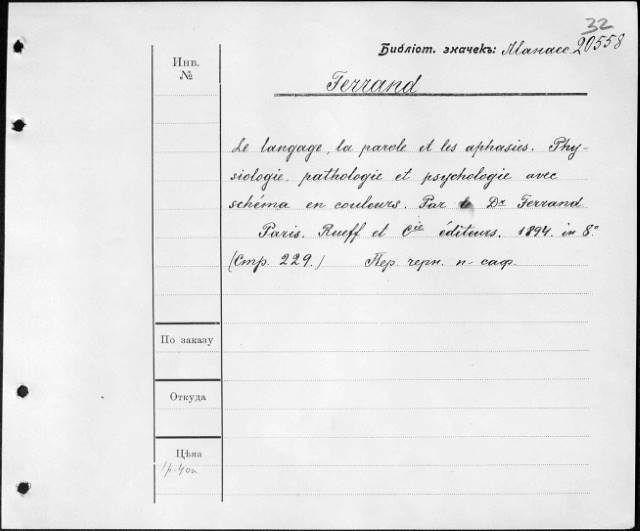 32
Библіот. значекъ: Manace 20558
Инв.
№
Ferrand
Le langage, la parole et les aphasies. Phy-
siologie, pathologie et psychologie avec
schéma en couleurs. Par le Dr Ferrand
Paris. Rueff et Cie éditeurs. 1894. in 8°
(Стр. 229.) Пер. черн. п-саф.
По заказу
Откуда
Цѣна
1р. 40к